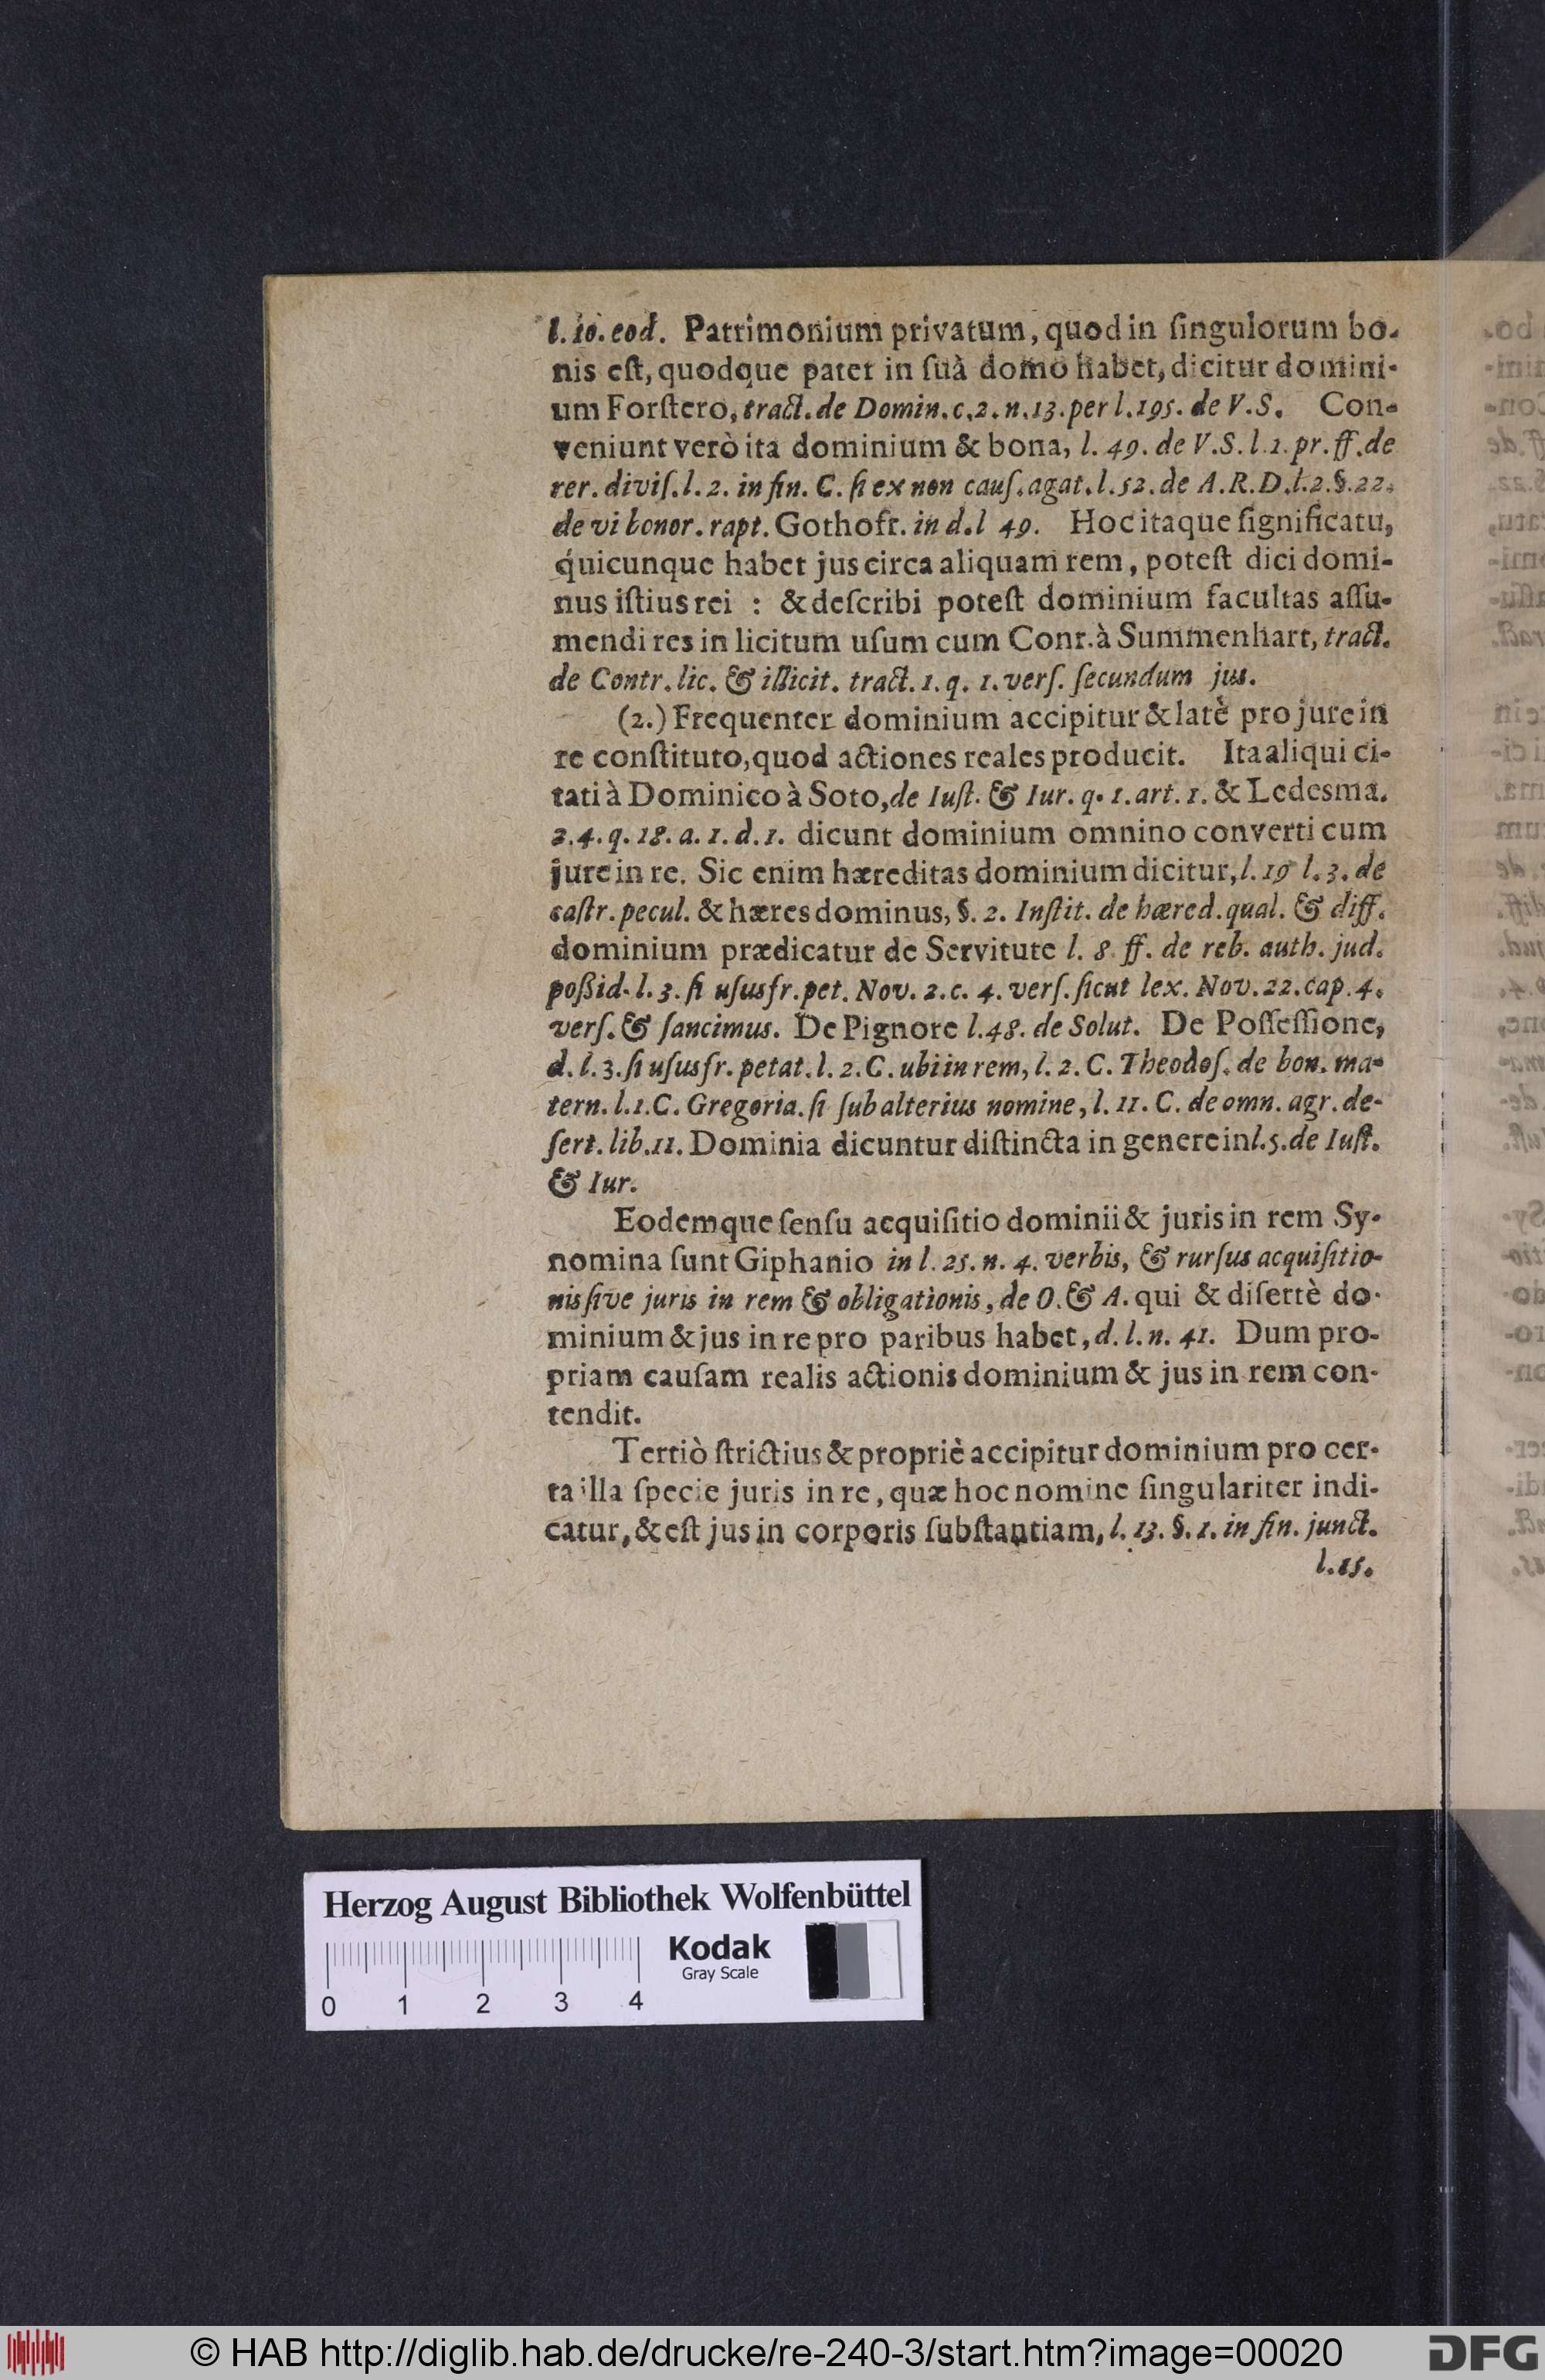 l. 10. eod. Patrimonium privatum, quod in ſingulorum bo-
nis eſt, quodque pater in ſuâ domo habet, dicitur domini-
um Forſtero, tract. de Domin. c. 2. n. 13. per l. 195. de V. S. Con-
veniunt verò ita dominium & bona, l. 49. de V. S. l. 1. pr. ff. de
rer. diviſ. l. 2. in fin. C. ſi ex non cauſ. agat. l. 52. de A. R. D. l. 2. §. 22.
de vi bonor. rapt. Gothofr. in d. l 49. Hoc itaque ſignificatu,
quicunque habet jus circa aliquam rem, poteſt dici domi-
nus iſtius rei : & deſcribi poteſt dominium facultas aſſu-
mendi res in licitum uſum cum Conr. à Summenhart, tract.
de Contr. lic. & illicit. tract. 1. q. 1. verſ. ſecundum jus.
(2.) Frequenter dominium accipitur & latè pro jure in
re conſtituto, quod actiones reales producit. Ita aliqui ci-
tati à Dominico à Soto, de Iuſt. & Iur. q. 1. art. 1. & Ledesma.
2. 4. q. 18. a. 1. d. 1. dicunt dominium omnino converti cum
jure in re. Sic enim hæreditas dominium dicitur, l. 19 l. 3. de
caſtr. pecul. & hæres dominus, §. 2. Inſtit. de hæred. qual. & diff.
dominium prædicatur de Servitute l. 8 ff. de reb. auth. jud.
poßid. l. 3. ſi uſusfr. pet. Nov. 2. c. 4. verſ. ſicut lex. Nov. 22. cap. 4.
verſ. & ſancimus. De Pignore l. 48. de Solut. De Poſſeſſione,
d. l. 3. ſi uſusfr. petat. l. 2. C. ubi in rem, l. 2. C. Theodoſ. de bon. ma-
tern. l. 1. C. Gregoria. ſi ſub alterius nomine, l. 11. C. de omn. agr. de-
ſert. lib. 11. Dominia dicuntur diſtincta in genere in l. 5. de Iuſt.
& Iur.
Eodemque ſenſu acquiſitio dominii & juris in rem Sy-
nomina ſunt Giphanio in l. 25. n. 4. verbis, & rurſus acquiſitio-
nis ſive juris in rem & obligationis, de O. & A. qui & diſertè do-
minium & jus in re pro paribus habet, d. l. n. 41. Dum pro-
priam cauſam realis actionis dominium & jus in rem con-
tendit.
Tertiò ſtrictius & propriè accipitur dominium pro cer-
ta illa ſpecie juris in re, quæ hoc nomine ſingulariter indi-
catur, & eſt jus in corporis ſubſtantiam, l. 13. §. 1. in fin. junct.
l. 15.
Herzog August Bibliothek Wolfenbüttel
Kodak
Gray Scale
0 1 2 3 4
© HAB http://diglib.hab.de/drucke/re-240-3/start.htm?image=00020
DFG